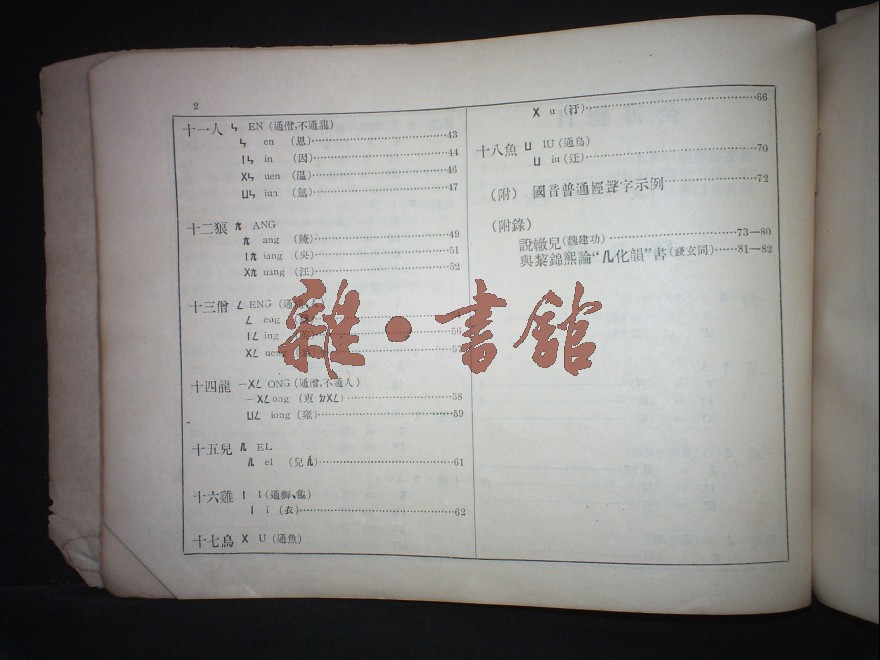 2
十一人 ㄣ EN (通僧,不通龍)
ㄣ en (恩)……43
ㄧㄣ in (因)……44
ㄨㄣ uen (溫)……46
ㄩㄣ iun (氳)……47
十二狼 ㄤ ANG
ㄤ ang (骯)……49
ㄧㄤ iang (央)……51
ㄨㄤ uang (汪)……52
十三僧 ㄥ ENG (通
ㄥ eng
ㄧㄥ ing 56
ㄨㄥ ueng 57
十四龍 —ㄨㄥ ONG (通僧,不通人)
—ㄨㄥ ong (東 ㄉㄨㄥ)……58
ㄩㄥ iong (雍)……59
十五兒 ㄦ EL
ㄦ el (兒ㄦ)……61
十六雞 ㄧ I (通獅、魚)
ㄧ i (衣)……62
十七烏 ㄨ U (通魚)
ㄨ u (汙)……66
十八魚 ㄩ IU (通烏)
ㄩ iu (迂)……70
(附) 國音普通輕聲字示例……72
(附錄)
說轍兒(魏建功)……73—80
與黎錦熙論“ㄦ化韻”書(錢玄同)……81—82
雜·書館